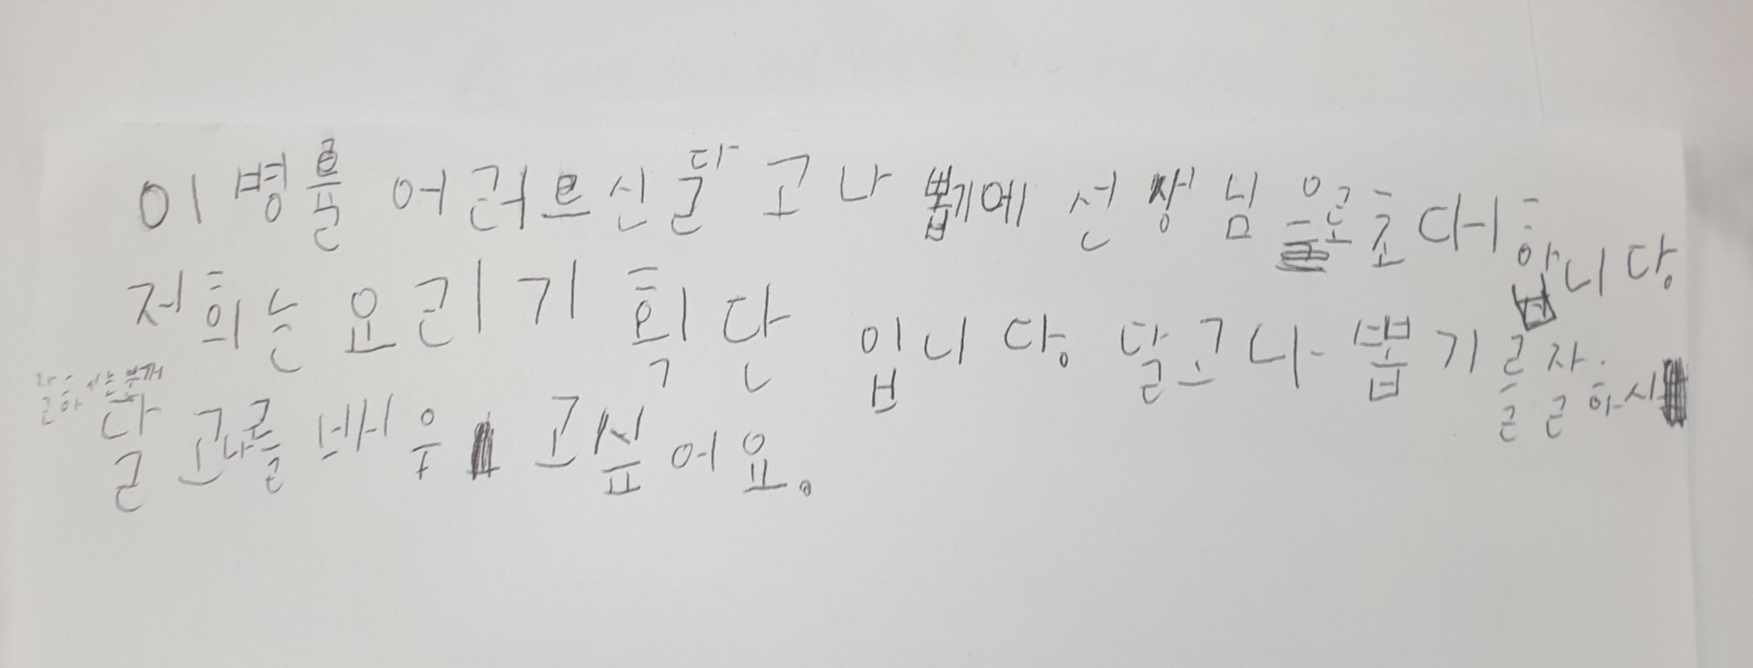 이병률 어러르신 달고나 뽑기에 선생님으로 초대합니다
저희는 요리기획단 입니다. 달고나 뽑기를 잘하시
는분께
달고나를 배우고 싶어요.